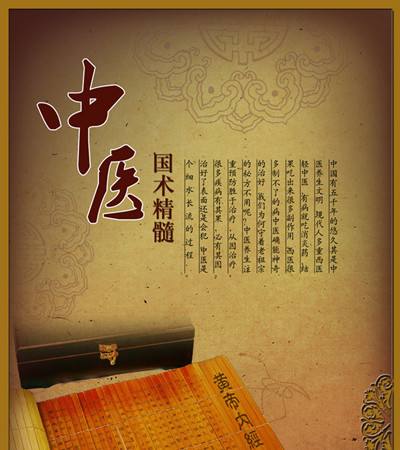 中医
国术精髓
中国有五千年的悠久其是中
医养生文明 现代人多重西医
轻中医 有病就吃消炎药 结
果吃出来很多副作用 西医很
多制不了的病中医确能神奇
的治好 我们为何守着老祖宗
的秘方不用呢?中医养生注
重预防胜于治疗 从因治疗
很多疾病有其果 必有其因
治好了表面还是会犯 中医是
个细水长流的过程
黃帝内經